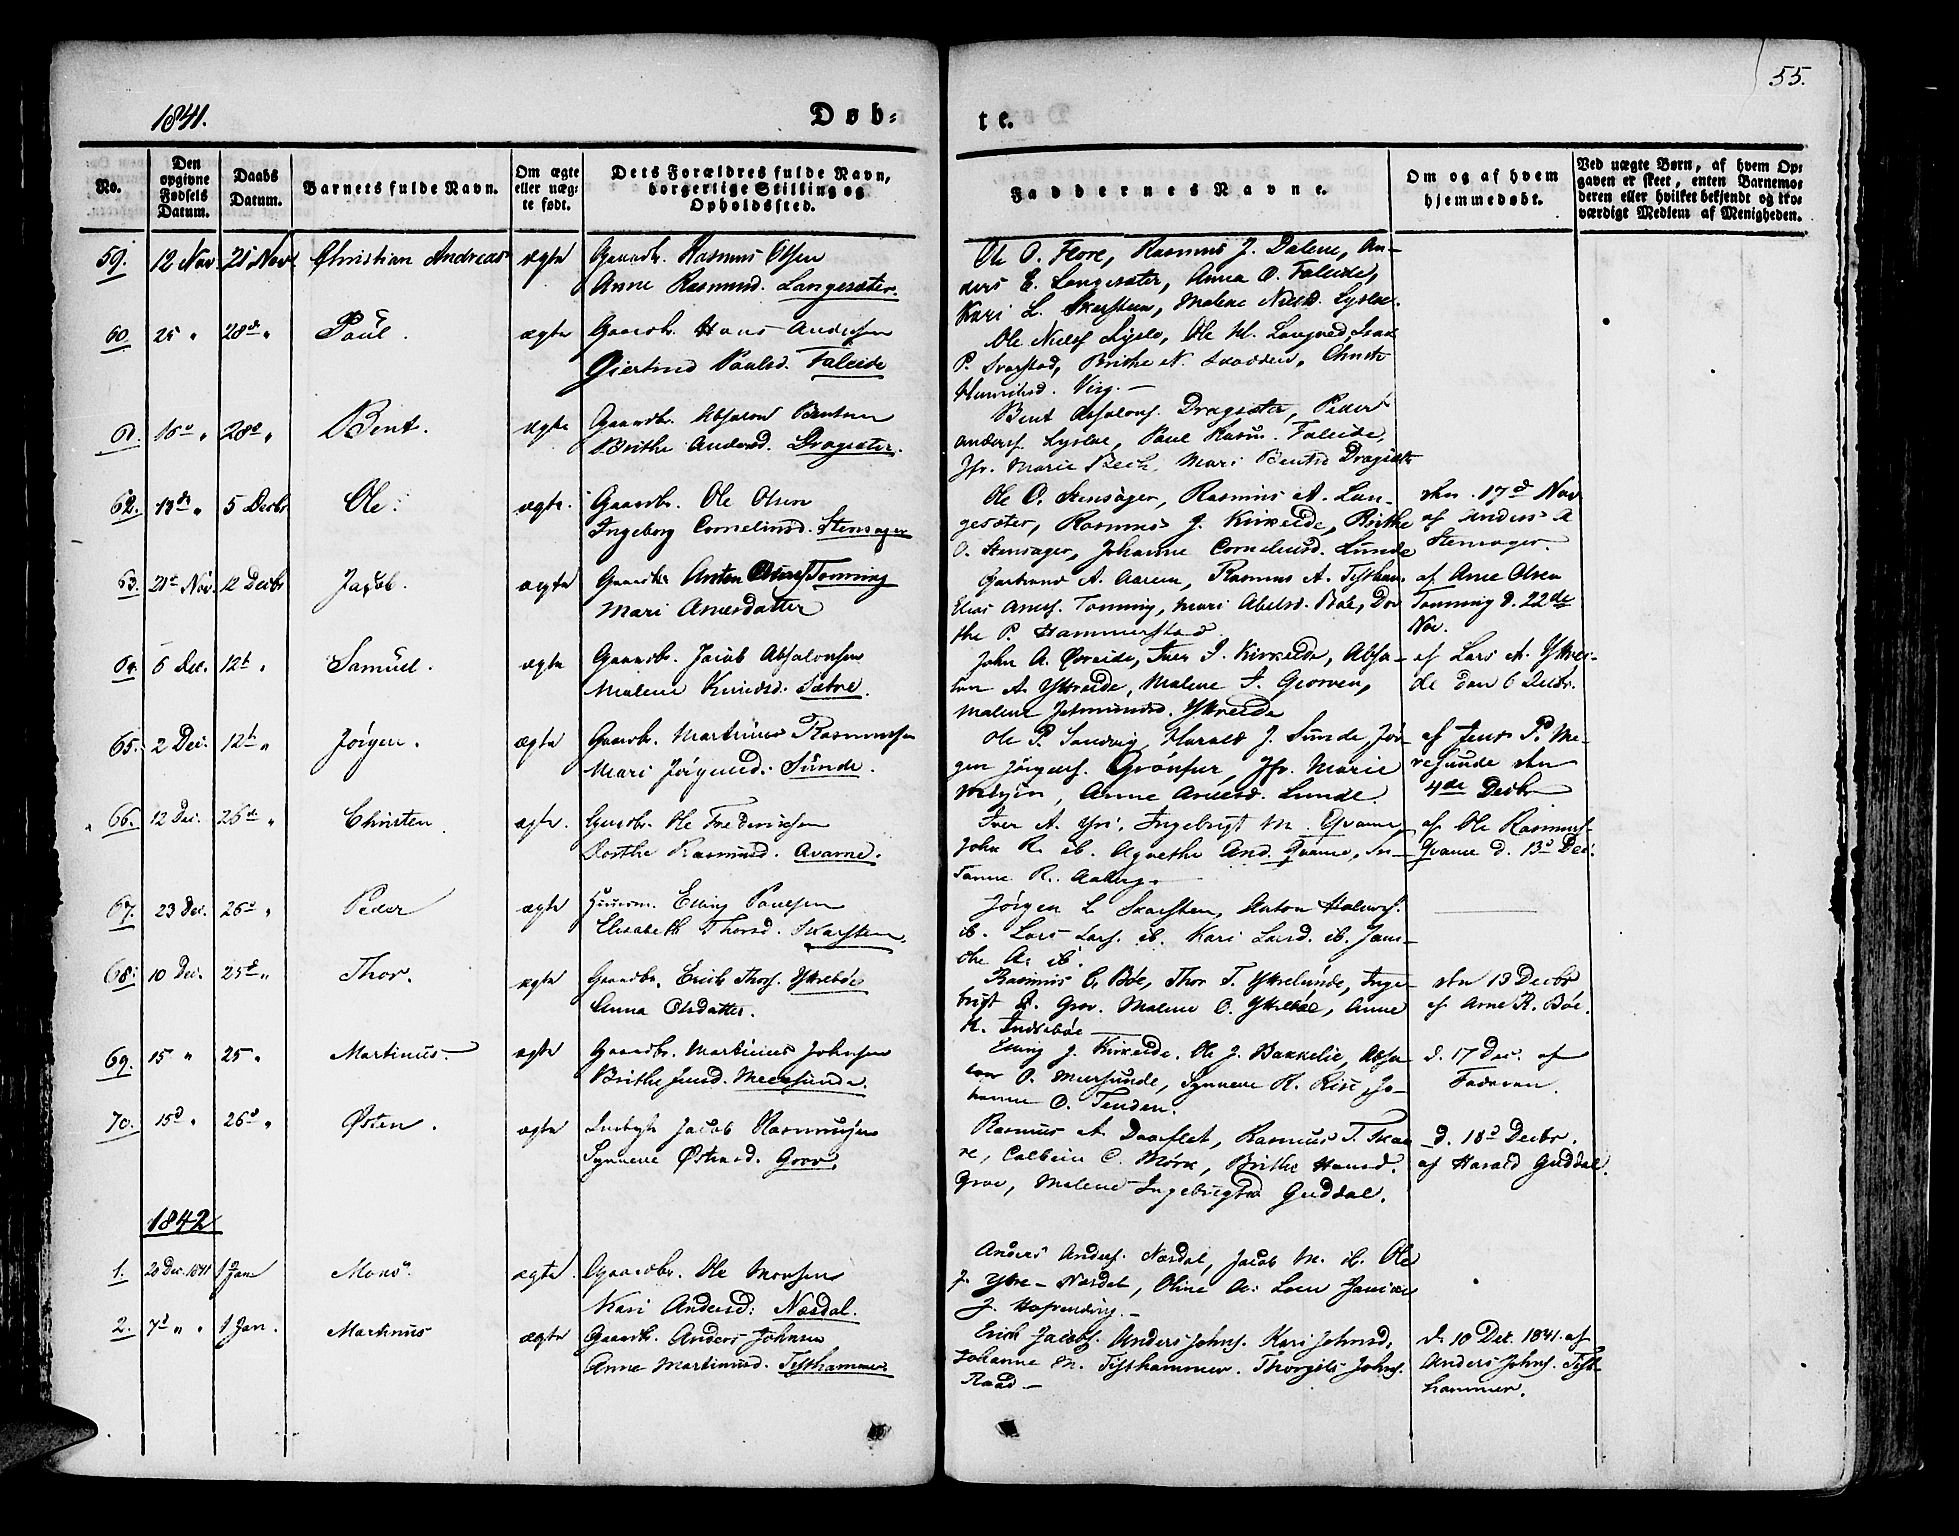 55.
1841.
Døb-
te.
No.
Den opgivne Fødsels Datum.
Daabs Datum.
Barnets fulde Navn.
Om ægte eller uægte født.
Dets Forældres fulde Navn, borgerlige Stilling og Opholdssted.
Faddernes Navne.
Om og af hvem hjemmedøbt.
Ved uægte Børn, af hvem Opgaven er skeet, enten Barnemoderen eller hvilket bekjendt og troværdigt Medlem af Menigheden.
59. 12 Nov. 21 Nov. Christian Andreas ægte Gaardbr. Rasmus Olsen
Anne Rasmusd. Langesæter.
Ole O. Flore, Rasmus J. Dalene, An-
ders E. Langesæter, Anna O. Faleide,
Kari L. Skarsteen, Malene Nielsd. Lysloe.
60. 25 " 28de " Paul. ægte Gaardbr. Hans Andersen
Giertrud Paulsd. Faleide
Ole Niels. Lyslo, Ole M. Langved, Isaac
P. Svarstad, Brithe N. , Christi
Henriksd. Visg.
61. 16de " 28de " Bent. ægte Gaardbr. Absalon Bentsen
Brithe Andersd. Dragesæter.
Bent Absalons. Dragesæter, Peder
Anders. Lysloe, Paul Rasm. Faleide,
Jfr. Marie Bech, Mari Bentsd. Dragesæt.
62. 13de " 5 Decbr Ole. ægte. Gaardbr. Ole Olsen
Ingeborg Corneliusd. Stensager
Ole O. Stensager, Rasmus A. Lan-
gesæter, Rasmus J. Kirkeide, Brithe
O. Stensager, Johanne Corneliusd. Sunde
den 17de Nov
af Anders A
Stensager.
63. 21de Nov. 12 Decbr Jacob. ægte Gaardbr. Anten Tonning
Mari Arnesdatter
Gartrud A. Aarem, Rasmus A. Tistham.
Elias Arnes. Tonning, Mari Abelsd. Bøe, Dor-
the P. Hammerstad
af Arne Olsen
Tonning d. 22de
Nov.
64. 5 Dec. 12te " Samuel. ægte Gaardbr. Jacob Absalonsen
Malene Knudsd. Sætre.
John A. Øvreide, Iver I. Kirkeide, Absa-
lon A. Ytreeide, Malene J. Grøven,
Malene Jetmundsd. Ytreeide
af Lars A. Ytreei-
de den 6 Decbr.
65. 2 Dec. 12te " Jørgen. ægte Gaardbr. Martinus Rasmussen
Mari Jørgensd. Sunde.
Ole P. Sandvig, Harald J. Sunde, Jør-
gen Jørgens. Grønfur, Jfr. Marie
, Anne Arnesd. Sunde.
af Jens P. Me-
resunde den
4de Decbr
66. 12 Dec. 26de " Christen ægte. Gaardbr. Ole Frederiksen
Dorthe Rasmusd. Qvame.
Iver A. Yri, Ingebrigt M. Qvame,
John R. ib. Agnethe And. Qvame, Su-
sanne R. Aaberg.
af Ole Rasmus.
Qvame d. 13de Dec.
67. 23 Dec. 26de " Peder ægte Huusm. Elling Paulsen
Elisabeth Thorsd. Skarsteen.
Jørgen L. Skarsteen, Anton Halvors.
ib. Lars Lars. ib. Kari Larsd. ib. Jan-
A. ib.
68. 10 Dec. 25de " Thor. ægte Gaardbr. Erich Thors. Ytrebøe
Anna Olsdatter.
Rasmus C. Bøe, Thor T. Ytrelunde, Inge-
brigt R. Grov. Malene O. Ytrebøe, Anne
K. Indrebøe
den 13 Decbr
af Arne R. Bøe.
69. 15 " 25 " Martinus. ægte Gaardbr. Martinus Johnsen
Brithe Jensd. Meersunde.
Elling J. Kirkeide, Ole J. Bakkelie, Absa-
lon O. Meersunde, Synneve H. Rise, Jo-
hanne O. Tenden.
d. 17 Dec. af
Faderen.
70. 15de " 26de " Østen. ægte Indbyst. Jacob Rasmussen
Synneve Østensd. Grov.
Rasmus A. Daasflet, Rasmus T. Skaa-
re, Colbein C. Mørk, Brithe Hansd.
Grov, Malene Ingebrigtsd. Guddal.
d. 18de Decbr.
af Harald Guddal.
1842
1. 20 Dec. 1841 1 Jan Mons. ægte Gaardbr. Ole Monsen
Kari Andersd. Næsdal.
Anders Anders. Næsdal, Jacob M. ib. Ole
J. Ytre-Næsdal, Oline A. Loen
J. Hofrending.
2. 7de " " 1 Jan. Martinus ægte Gaardb. Anders Johnsen
Anne Martinusd. Tisthammer
Erich Jacobs. Anders Johns. Kari Johnsd.
Johanne M. Tisthammer. Thorgils Johns.
Raad
d. 10 Dec. 1841 af
Anders Johns. Tist-
hammer.